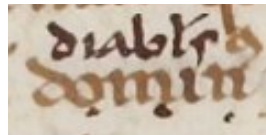 diabl̃s
domin